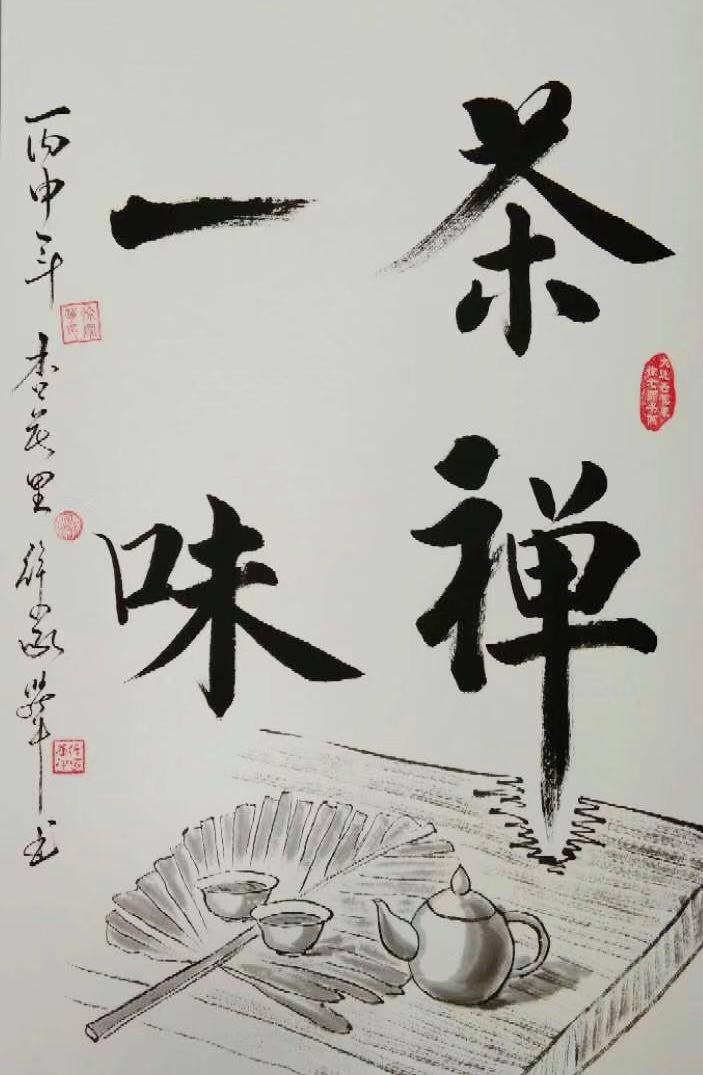 茶禅
一味
丙申年 杏花里 书